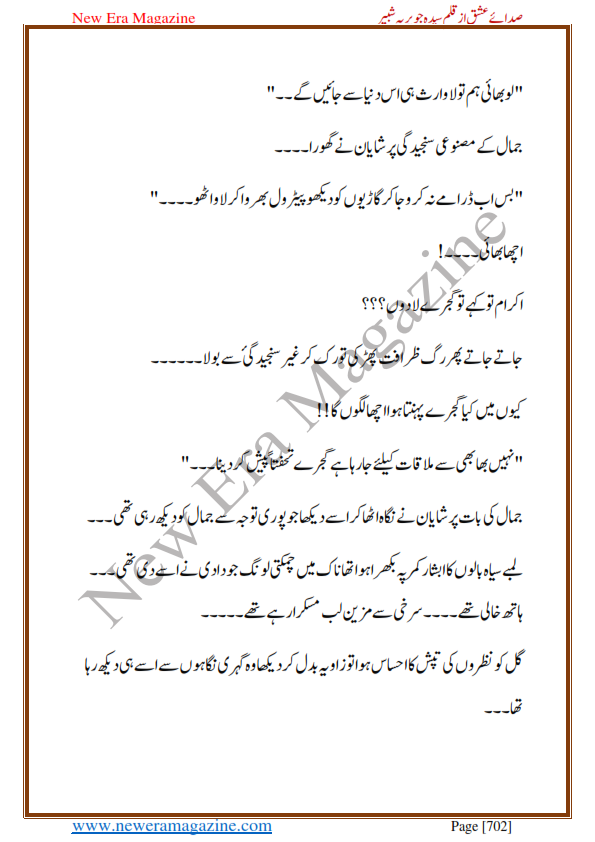 New Era Magazine صدائے عشق از قلم سیدہ جویریہ شبیر
"لو بھائی ہم تو لاوارث ہی اس دنیا سے جائیں گے۔۔"
جمال کے مصنوعی سنجیدگی پر شایان نے گھورا۔۔۔۔
"بس اب ڈرامے نہ کرو جا کر گاڑیوں کو دیکھو پیٹرول بھروا کر لاو اٹھو۔۔۔۔"
اچھا بھائی۔۔۔۔!
اکرام تو کہے تو گجرے لا دوں؟؟؟
جاتے جاتے پھر رگ ظرافت پھڑکی تو رک کر غیر سنجیدگی سے بولا۔۔۔۔۔۔
کیوں میں کیا گجرے پہنتا ہوا اچھا لگوں گا!!
"نہیں بھابھی سے ملاقات کیلئے جا رہا ہے گجرے تحفتاً پیش کر دینا۔۔۔"
جمال کی بات پر شایان نے نگاہ اٹھا کر اسے دیکھا جو پوری توجہ سے جمال کو دیکھ رہی تھی۔۔۔
لمبے سیاہ بالوں کا ابشار کمر پہ بکھرا ہوا تھا ناک میں چمکتی لونگ جو دادی نے اسے دی تھی۔۔۔
ہاتھ خالی تھے۔۔۔۔ سرخی سے مزین لب مسکرا رہے تھے۔۔۔۔۔
گل کو نظروں کی تپش کا احساس ہوا تو زاویہ بدل کر دیکھا وہ گہری نگاہوں سے اسے ہی دیکھ رہا
تھا۔۔۔
New Era Magazine
www.neweramagazine.com Page [702]